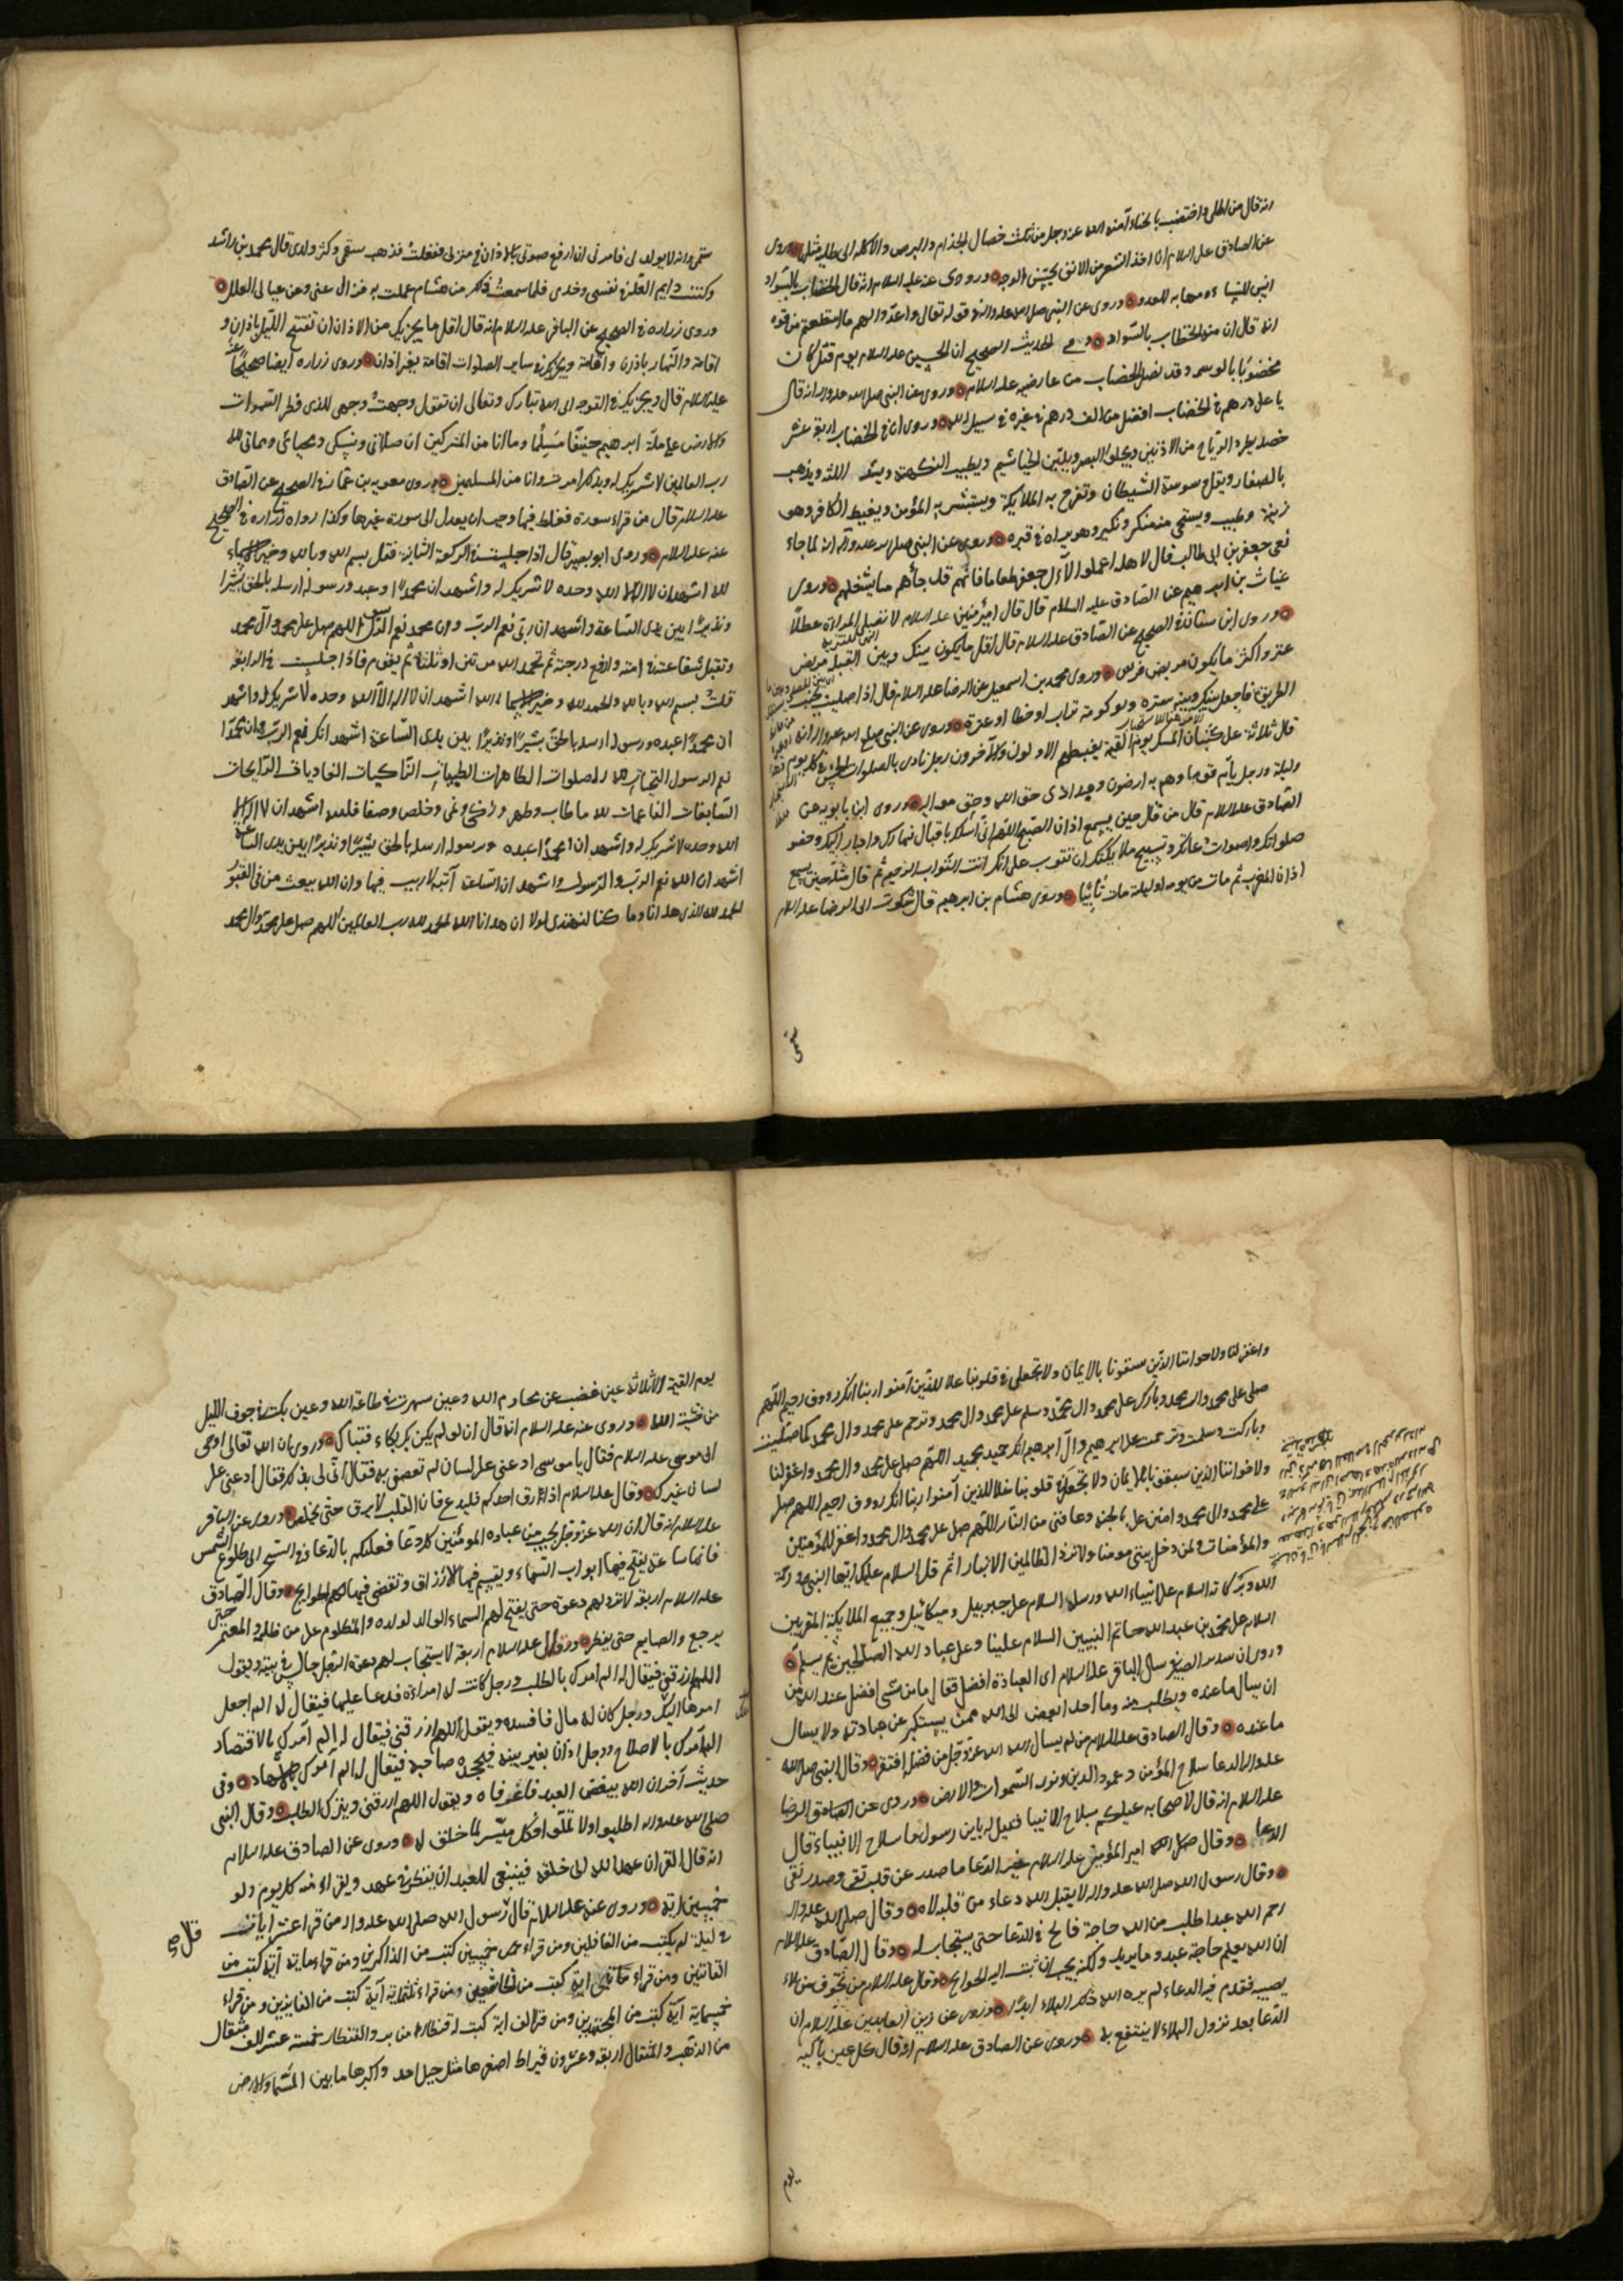 انه قال من اطلى واختضب بالحناء آمنه الله عز وجل من ثلث خصال الجذام والبرص والاكله الى طليه مثلها وروى
عن الصادق عليه السلام ان اخذ الشعر من الانف يحسّن الوجه وروى عنه عليه السلام انه قال الخضاب بالسواد
انس للنساء ومهابه للعدو وروى عن النبي صلى الله عليه واله في قوله تعالى واعدّوا لهم ما استطعتم من قوة
انه قال ان منه الخضاب بالسواد وفي الحديث الصحيح ان الحسين عليه السلام يوم قتل كان
مخضوبًا بالوسمه وقد نصل الخضاب من عارضيه عليه السلام وروى عن النبي صلى الله عليه واله انه قال
يا على درهم في الخضاب افضل من الف درهم في غيره في سبيل الله وروى ان في الخضاب اربعة عشر
خصله يطرد الرياح من الاذنين ويجلو البصر ويليّن الخياشيم ويطيب النكهة ويشد اللثه ويذهب
بالصفار ويقل وسوسة الشيطان وتفرح به الملايكة ويستبشر به المؤمن ويغيظ الكافر وهو
زينة وطيب ويستحى منه منكر ونكير وهو براءه في قبره وروى عن النبي صلى الله عليه وآله انه لما جاء
نعى جعفر بن ابى طالب قال لاهله اعملوا لآل جعفر طعاما فانهم قد جاءهم ما يشغلهم وروى
غياث بن ابرهيم عن الصادق عليه السلام قال قال امير المؤمنين عليه السلام لا تصلي المراة عطلًا
وروى ابن سنان في الصحيح عن الصادق عليه السلام قال اقل ما يكون بينك وبين القبلة مربض
عنز واكثر ما يكون مربض فرس وروى محمد بن اسمعيل عن الرضا عليه السلام قال اذا صليت بجنب
الطريق فاجعل بينك وبينه ستره ولو كومة تراب او خطا او عنزة وروى عن النبي صلى الله عليه واله انه
قال ثلاثة على كثبان المسك يوم القيمة يغبطهم الاولون والآخرون رجل نادى بالصلوات الخمس في كل يوم
وليلة ورجل يأم قوما وهم به راضون وعبد ادى حق الله وحق مواليه وروى ابن بابويه عن
الصادق عليه السلام قال من قال حين يسمع اذان الصبح اللهم اني اسئلك باقبال نهارك وادبار ليلك وحضور
صلواتك واصوات دعائك وتسبيح ملائكتك ان تتوب على انك انت التواب الرحيم ثم قال مثله حين يسمع
اذان المغرب ثم مات من يومه او ليلته مات تائبًا وروى هشام بن ابرهيم قال شكوت الى الرضا عليه السلام
سقمى
سقمى وانه لا يولد لى فامرنى ان ارفع صوتى بالاذان في منزلى ففعلت فذهب سقمى وكثر ولدى قال محمد بن راشد
وكنت دايم العلة في نفسى وخدمى فلما سمعت ذلك من هشام عملت به فزال عنى وعن عيالى العلل
وروى زراره في الصحيح عن الباقر عليه السلام انه قال اقل ما يجزيك من الاذان ان تفتتح الليل باذان و
اقامة والنهار باذان واقامة ويجزيك في ساير الصلوات اقامة بغير اذان وروى زراره ايضا صحيحًا عنه
عليه السلام قال ويجزيك في التوجه الى الله تبارك وتعالى ان تقول وجهت وجهى للذى فطر السموات
والارض على ملة ابرهيم حنيفًا مسلمًا وما انا من المشركين ان صلاتى ونسكى ومحياى ومماتى لله
رب العالمين لا شريك له وبذلك امرت وانا من المسلمين وروى معويه بن عمار في الصحيح عن الصادق
عليه السلام قال من قراء سورة فغلط فيها وجب ان يعدل الى سورة غيرها وكذا رواه زراره في الصحيح
عنه عليه السلام وروى ابو بصير قال اذا جلست في الركعة الثانية فقل بسم الله وبالله وخير الاسماء
لله اشهد ان لا اله الا الله وحده لا شريك له واشهد ان محمدًا عبده ورسوله ارسله بالحق بشيرًا
ونذيرًا بين يدى الساعة واشهد ان ربى نعم الرب وان محمد نعم الرسول اللهم صل على محمد وآل محمد
وتقبل شفاعته في امته وارفع درجته ثم تحمد الله مرتين او ثلثا ثم تقوم فاذا جلست في الرابعة
قلت بسم الله وبالله والحمد لله وخير الاسماء لله اشهد ان لا اله الا الله وحده لا شريك له واشهد
ان محمدًا عبده ورسوله ارسله بالحق بشيرًا ونذيرًا بين يدى الساعة اشهد انك نعم الرب وان محمدًا
نعم الرسول التحيات لله والصلوات الطاهرات الطيبات الزاكيات الغاديات الرايحات
السابغات الناعمات لله ما طاب وطهر وزكى ونمى وخلص وصفا فلله اشهد ان لا اله الا
الله وحده لا شريك له واشهد ان محمدًا عبده ورسوله ارسله بالحق بشيرًا ونذيرًا بين يدى الساعة
اشهد ان الله نعم الرب والرسول واشهد ان الساعة آتية لا ريب فيها وان الله يبعث من في القبور
الحمد لله الذى هدانا وما كنا لنهتدى لولا ان هدانا الله الحمد لله رب العالمين اللهم صل على محمد وال محمد
واغفر لنا ولاخواننا الذين سبقونا بالايمان ولا تجعل في قلوبنا غلا للذين آمنوا ربنا انك رءوف رحيم اللهم
صلى على محمد وال محمد وبارك على محمد وال محمد وسلم على محمد وال محمد وترحم على محمد وال محمد كما صليت
وباركت وسلمت وترحمت على ابرهيم وآل ابرهيم انك حميد مجيد اللهم صلى على محمد وال محمد واغفر لنا
ولاخواننا الذين سبقونا بالايمان ولا تجعل في قلوبنا غلا للذين آمنوا ربنا انك رءوف رحيم اللهم صل
على محمد وال محمد وامنن على بالجنه وعافنى من النار اللهم صل على محمد وال محمد واغفر للمؤمنين
والمؤمنات ولمن دخل بيتى مومنا ولا تزد الظالمين الا تبارا ثم قل السلام عليك ايها النبي ورحمة
الله وبركاته السلام على انبياء الله ورسله السلام على جبرييل وميكائيل وجميع الملايكة المقربين
السلام على محمد بن عبد الله خاتم النبيين السلام علينا وعلى عباد الله الصالحين ثم يسلم
وروى ان سدير الصيرفى سال الباقر عليه السلام اى العبادة افضل فقال ما من شى افضل عند الله من
ان يسال ما عنده ويطلب منه وما احد ابغض الى الله ممن يستكبر عن عبادته ولا يسال
ما عنده وقال الصادق عليه السلام من لم يسال الله عز وجل من فضله افتقر وقال النبي صلى الله
عليه واله الدعا سلاح المؤمن وعمود الدين ونور السموات والارض وروى عن الرضا
عليه السلام انه قال لاصحابه عليكم بسلاح الانبيا فقيل له يابن رسول الله ما سلاح الانبياء قال
الدعا وقال امير المؤمنين عليه السلام خير الدعا ما صدر عن قلب تقى وصدر نقى
وقال رسول الله صلى الله عليه واله لا يقبل الله دعاء من قلبه لاه وقال صلى الله عليه واله
رحم الله عبدا طلب من الله حاجة فالح في الدعا حتى يستجاب له وقال الصادق عليه السلام
ان الله يعلم حاجة عبده وما يريد ولكنه يحب ان تبث اليه الحوايج وقال عليه السلام من تخوف من بلاء
يصيبه فقدم فيه الدعاء لم يره الله ذلك البلاء ابدًا وروى عن زين العابدين عليه السلام ان
الدعا بعد نزول البلاء لا ينتفع به وروى عن الصادق عليه السلام انه قال كل عين باكية
يوم
يوم القيمة الا ثلاثة عين غضت عن محارم الله وعين سهرت في طاعة الله وعين بكت في جوف الليل
من خشية الله وروى عنه عليه السلام انه قال ان لم يكن بك بكاء فتباك وروى ان الله تعالى اوحى
الى موسى عليه السلام فقال يا موسى ادعنى على لسان لم تعصنى به فقال انى لى بذلك فقال ادعنى على
لسان غيرك وقال عليه السلام اذا رق احدكم فليدع فان القلب لا يرق حتى يخلص وروى عن الباقر
عليه السلام انه قال ان الله عز وجل يحب من عباده المومنين كل دعا فعليكم بالدعا في السحر الى طلوع الشمس
فانها ساعة يفتح فيها ابواب السماء ويقسم فيها الارزاق وتقضى فيها الحوايج وقال الصادق
عليه السلام اربعة لا ترد لهم دعوة حتى يفتح لهم السماء الوالد لولده والمظلوم على من ظلمه والمعتمر حتى
يرجع والصايم حتى يفطر وقال عليه السلام اربعة لا يستجاب لهم دعوة الرجل جالس في بيته ويقول
اللهم ارزقنى فيقال له الم امرك بالطلب ورجل كانت له امراءة فدعا عليها فيقال له الم اجعل
امرها اليك ورجل كان له مال فافسده ويقول اللهم ارزقنى فيقال له الم آمرك بالاقتصاد
الم آمرك بالاصلاح ورجل ادان بغير بينه فيجحده صاحبه فيقال له الم آمرك بالاشهاد وفى
حديث آخر ان الله يبغض العبد فاغر فاه ويقول اللهم ارزقنى ويترك الطلب وقال النبي
صلى الله عليه واله اطلبوا ولا تملوا فكل ميسّر لما خلق له وروى عن الصادق عليه السلام
انه قال القران عهد الله الى خلقه فينبغى للعبد ان ينظر في عهده ويقراء منه كل يوم ولو
خمسين اية وروى عنه عليه السلام قال رسول الله صلى الله عليه واله من قرا عشر ايات
في ليلة لم يكتب من الغافلين ومن قراء خمسين كتب من الذاكرين ومن قراء ماية آية كتب من
القانتين ومن قراء مأتى اية كتب من الخاشعين ومن قراء ثلثماية آية كتب من الفايزين ومن قراء
خمسماية آية كتب من المجتهدين ومن قرا الف اية كتب له قنطار من بر والقنطار خمسة عشر الف مثقال
من الذهب والمثقال اربعة وعشرون قيراط اصغرها مثل جبل احد واكبرها ما بين السماء والارض